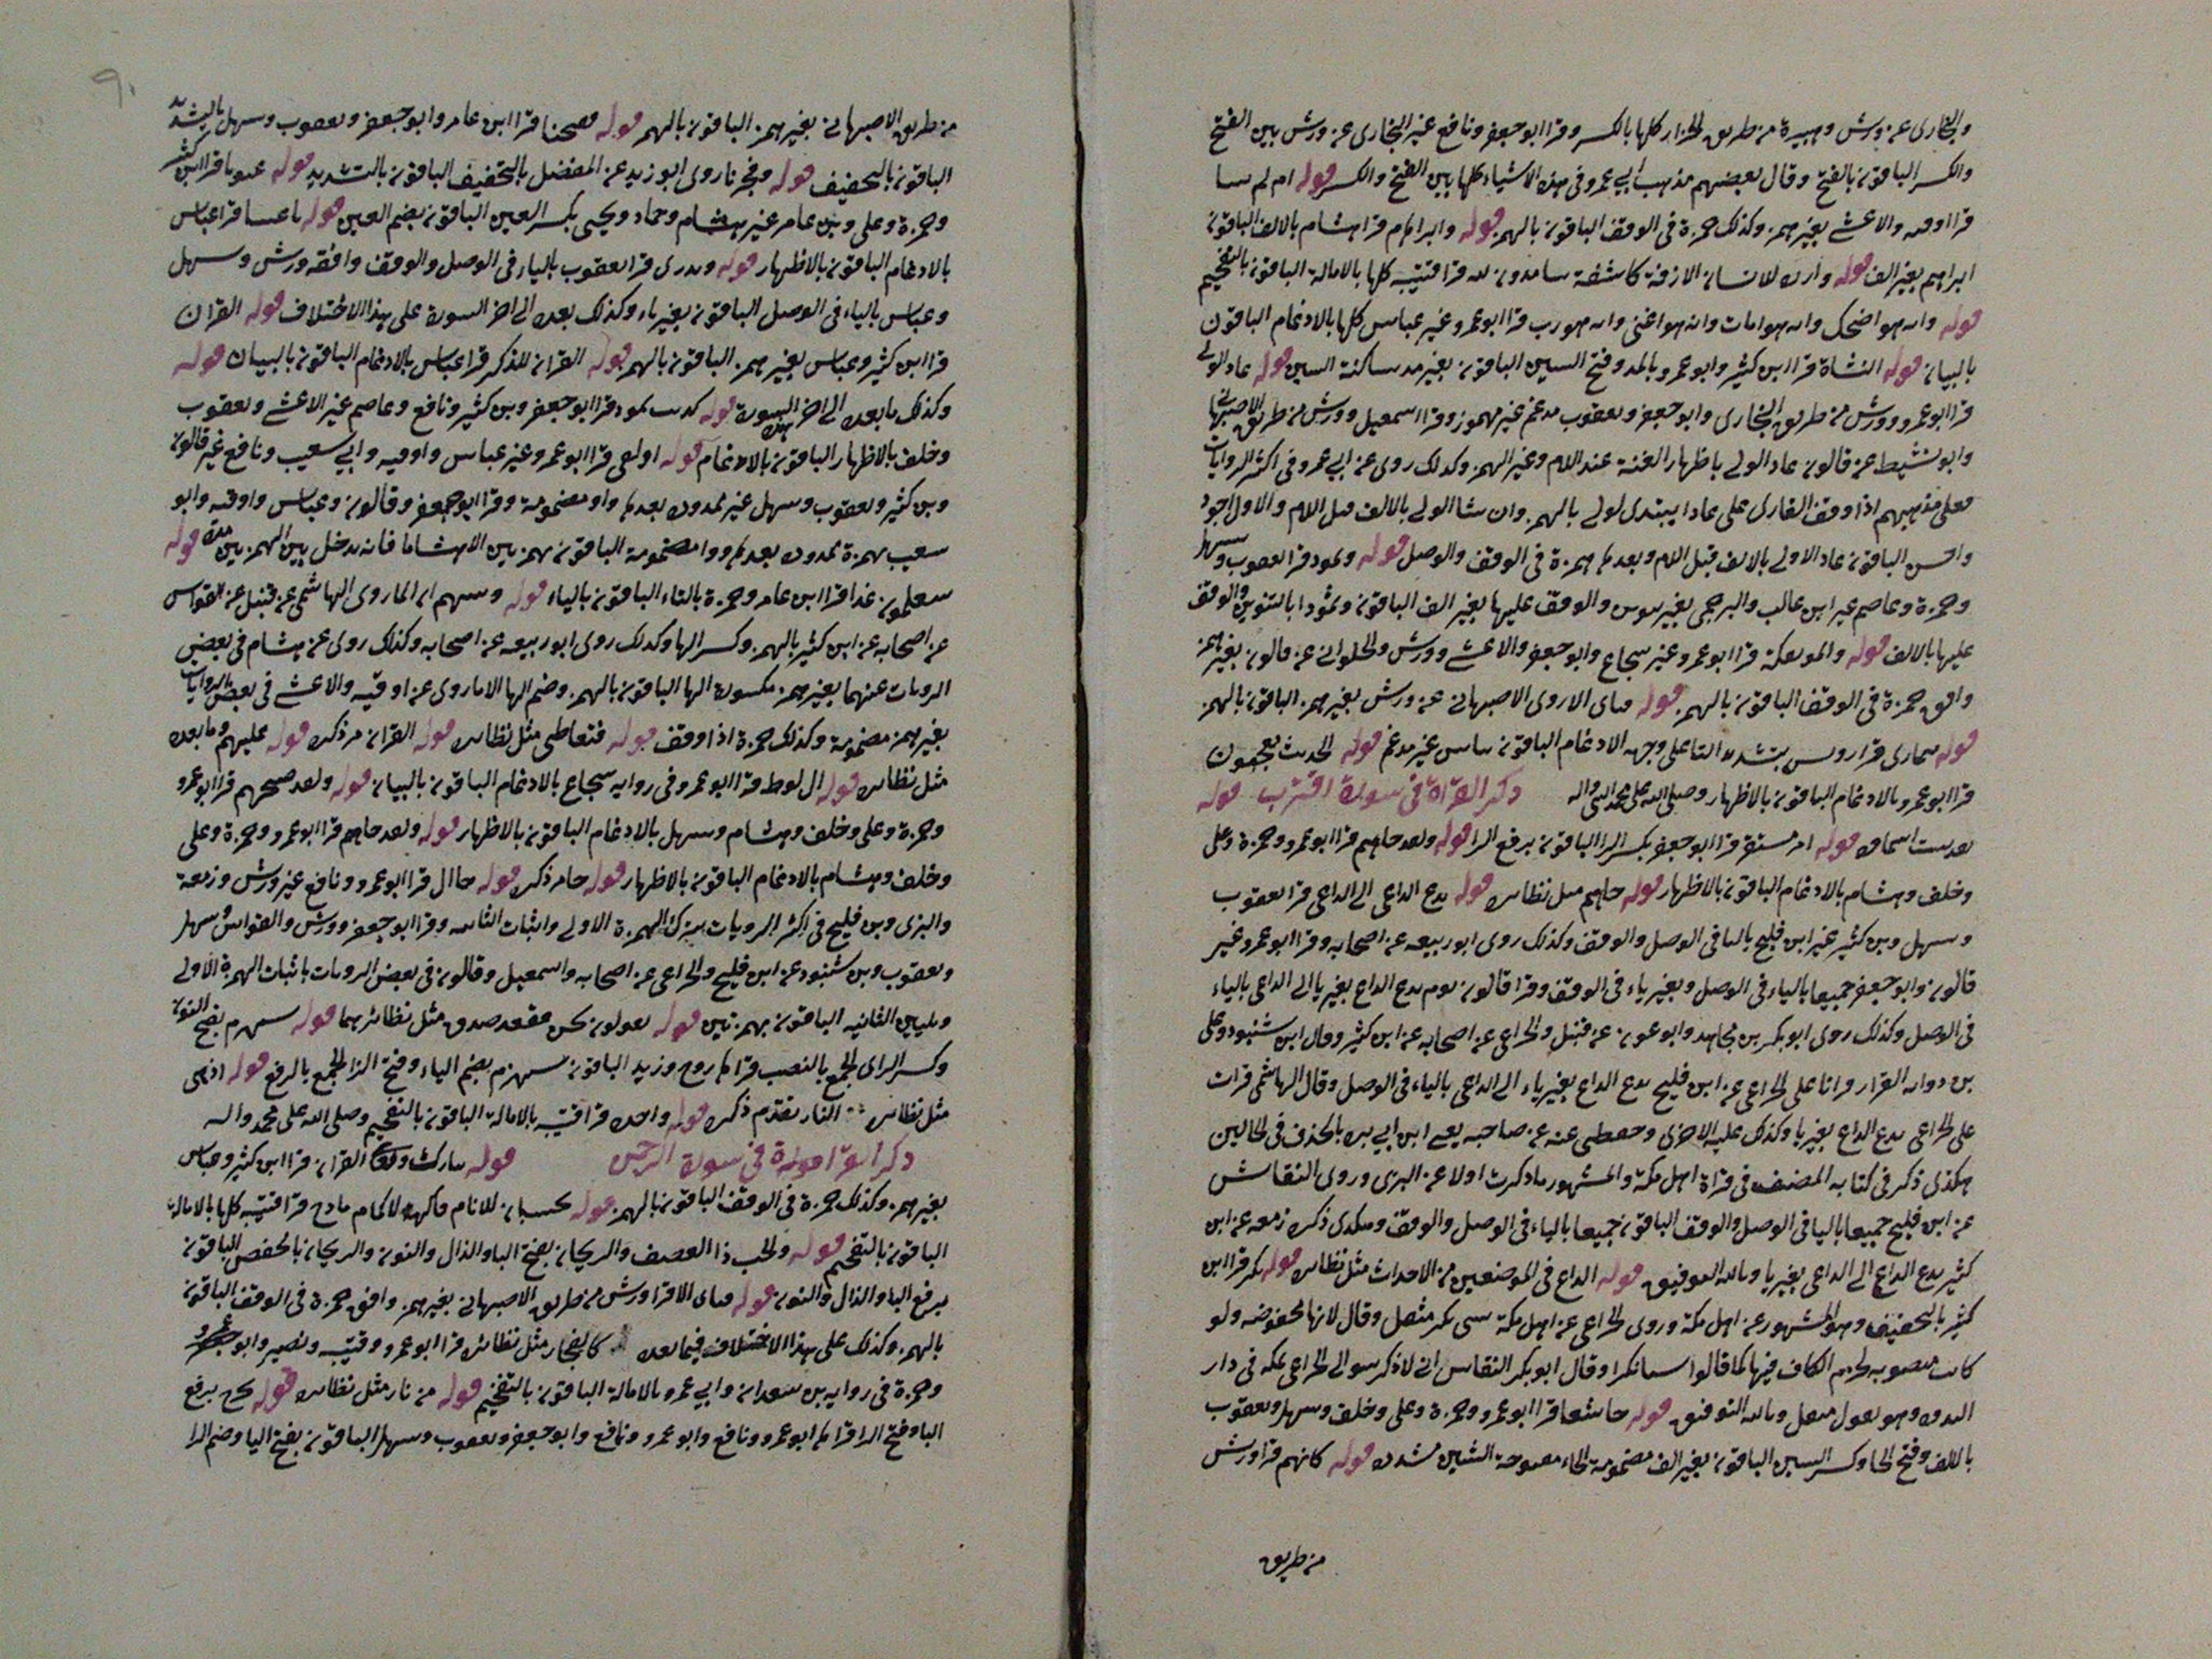 والبخارى عن ورش وهبيرة من طريق الخزاز كلها بالكسر وقرا ابو جعفر ونافع غير البخارى عن ورش بين الفتح
والكسر الباقون بالفتح وقال بعضهم مذهب ابي عمرو فى هذه الاشياء كلها بين الفتح والكسر قوله ام لم
قرا اوقيه والاعشى بغير همز وكذلك حمزة فى الوقف الباقون بالهمز قوله وابراهيم قرا هشام بالالف الباقون
ابراهيم بغير الف قوله وان للانسان الازفة كاشفة سامدون لله قرا قتيبة كلها بالامالة الباقون بالتفخيم
قوله وانه هو اضحك وانه هو امات وانه هو اغنى وانه هو رب قرا ابو عمرو غير عباس كلها بالادغام الباقون
بالبيان قوله النشاة قرا ابن كثير وابو عمرو بالمد وفتح السين الباقون بغير مد ساكنة السين قوله عاد الولى
قرا ابو عمرو وورش من طريق البخارى وابو جعفر ويعقوب مدغم غير مهموز وقرا اسمعيل وورش من طريق الاصبهانى
وابو نشيط عن قالون عاد الولى باظهار الغنة عند اللام وغير الهمز وكذلك روى عن ابي عمرو فى اكثر الروايات
فعلى مذهبهم اذا وقف القارى على عادا يبتدى لولى بالهمز وان شا الولى بالالف قبل اللام والاول اجود
واحسن الباقون عاد الاولى بالالف قبل اللام وبعدها همزة فى الوقف والوصل قوله وثمود قرا يعقوب وسهل
وحمزة وعاصم غير ابن غالب والبرجمى بغير تنوين والوقف عليها بغير الف الباقون وثمودا بالتنوين والوقف
عليها بالالف قوله والموتفكة قرا ابو عمرو غير شجاع وابو جعفر والاعشى وورش والحلوانى عن قالون بغير همز
وافق حمزة فى الوقف الباقون بالهمز قوله فباى الا روى الاصبهانى عن ورش بغير همز الباقون بالهمز
قوله تتمارى قرا رويس بتشديد التا على وجه الادغام الباقون بتاين غير مدغم قوله الحديث تعجبون
قرا ابو عمرو بالادغام الباقون بالاظهار وصلى الله على محمد النبى واله ذكر القراة فى سورة اقتربت قوله
قوله امر مستقر قرا ابو جعفر بكسر الرا الباقون برفع الرا قوله ولقد جاهم قرا ابو عمرو وحمزة وعلى
وخلف وهشام بالادغام الباقون بالاظهار قوله جاهم مثل نظايره قوله يدع الداعى الى الداعى قرا يعقوب
وسهل وبن كثير غير ابن فليح باليا فى الوصل والوقف وكذلك روى ابو ربيعه عن اصحابه وقرا ابو عمرو غير
قالون وابو جعفر جميعا بالياء فى الوصل وبغير ياء فى الوقف وقرا قالون يوم يدع الداع بغير يا الى الداعى بالياء
فى الوصل وكذلك روى ابو بكر بن مجاهد وابو عون عن قنبل والخزاعى عن اصحابه عن ابن كثير وقال ابن شنبوذ وعلى
بن القرار وانا على الخزاعى عن ابن فليح يدع الداع بغير ياء الى الداعى بالياء فى الوصل وقال الهاشمى قرات
على الخزاعى يدع الداع بغير يا وكذلك عليه الاخرى وحفظى عنه عن صاحبه يعنى ابن ابي بزه بالحذف فى الحالين
هكذى ذكر فى كتابه المصنف فى قراة اهل مكة والمشهور ما ذكرت اولا عن البزى وروى النقاش
عن ابن فليح جميعا باليا فى الوصل والوقف الباقون جميعا بالياء فى الوصل والوقف وهكذى ذكر زمعه عن ابن
كثير يدع الداع الى الداعى بغير يا وبالله التوفيق قوله الداع فى الموضعين من الاجداث مثل نظايره قوله نكر قرا ابن
كثير بالتخفيف وهو المشهور عن اهل مكة وروى الخزاعى عن اهل مكة شى نكر مثقل وقال لانها مخفوضه ولو
كانت منصوبه لجزم الكاف فيها كما قالوا شيا نكرا وقال ابو بكر النقاش انى لاذكر سوالى الخزاعى بمكه فى دار
الندوه وهو يقول مثقل وبالله التوفيق قوله خاشعا قرا ابو عمرو وحمزة وعلى وخلف وسهل ويعقوب
بالالف وفتح الخا وكسر الشين الباقون بغير الف مضمومة الخاء مفتوحة الشين مشدده قوله كانهم قرا ورش
من طريق
من طريق الاصبهانى بغير همز الباقون بالهمز قوله ففتحنا قرا ابن عامر وابو جعفر ويعقوب وسهل بالتشديد
الباقون بالتخفيف قوله وفجرنا روى ابو زيد عن المفضل بالتخفيف الباقون بالتشديد قوله عيونا قرا ابن كثير
وحمزة وعلى وبن عامر غير هشام وحماد ويحيى بكسر العين الباقون بضم العين قوله باعيننا قرا عباس
بالادغام الباقون بالاظهار قوله ونذرى قرا يعقوب بالياء فى الوصل والوقف وافقه ورش وسهل
وعباس بالياء فى الوصل الباقون بغير ياء وكذلك بعده الى اخر السورة على هذا الاختلاف قوله القران
قرا ابن كثير وعباس بغير همز الباقون بالهمز قوله القران للذكر قرا عباس بالادغام الباقون بالبيان قوله
وكذلك ما بعده الى اخر السورة قوله كذبت ثمود قرا ابو جعفر وبن كثير ونافع وعاصم غير الاعشى ويعقوب
وخلف بالاظهار الباقون بالادغام قوله اولقى قرا ابو عمرو غير عباس واوقيه وابي شعيب ونافع غير قالون
وبن كثير ويعقوب وسهل غير ممدود بعدها واو مضمومة وقرا ابو جعفر وقالون وعباس واوقيه وابو
شعيب بهمزة ممدوده بعدها واو مضمومة الباقون بهمزتين الا هشاما فانه يدخل بين الهمزتين مدة قوله
سيعلمون غدا قرا ابن عامر وحمزة بالتاء الباقون بالياء قوله ونبيهم ان الما روى الهاشمى عن قنبل عن القواس
عن اصحابه عن ابن كثير بالهمز وكسر الها وكذلك روى ابو ربيعه عن اصحابه وكذلك روى عن هشام فى بعض
الروايات عنهما بغير همز مكسورة الها الباقون بالهمز وضم الها الا ما روى عن اوقيه والاعشى فى بعض الروايات
بغير همز مضمومة وكذلك حمزة اذا وقف قوله فتعاطى مثل نظايره قوله القران مر ذكره قوله عليهم وما بعده
مثل نظايره قوله ال لوط قرا ابو عمرو فى روايه شجاع بالادغام الباقون بالبيان قوله ولقد صبحهم قرا ابو عمرو
وحمزة وعلى وخلف وهشام وسهل بالادغام الباقون بالاظهار قوله ولقد جاهم قرا ابو عمرو وحمزة وعلى
وخلف وهشام بالادغام الباقون بالاظهار قوله جا مر ذكره قوله جا ال قرا ابو عمرو ونافع غير ورش وزمعة
والبزى وبن فليح فى اكثر الروايات بترك الهمزة الاولى واثبات الثانيه وقرا ابو جعفر وورش والقواس وسهل
ويعقوب وبن شنبوذ عن ابن فليح والخزاعى عن اصحابه واسمعيل وقالون فى بعض الروايات باثبات الهمزة الاولى
وتليين الثانيه الباقون بهمزتين قوله يقولون نحن مقعد صدق مثل نظائرهما قوله سنهزم بفتح النون
وكسر الزاى الجمع بالنصب قراها روح وزيد الباقون سيهزم بضم الياء وفتح الزا الجمع بالرفع قوله ادهى
مثل نظايره النار تقدم ذكره قوله واحده قرا قتيبه بالامالة الباقون بالتفخيم وصلى الله على محمد واله
ذكر القراة فى سورة الرحمن قوله القران قرا ابن كثير وعباس
بغير همز وكذلك حمزة فى الوقف الباقون بالهمز قوله بحسبان للانام فاكهة الاكمام مارج قرا قتيبه كلها بالامالة
الباقون بالتفخيم قوله والحب ذا العصف والريحان بفتح البا والذال والنون والريحان بالخفض الباقون
برفع البا والذال والنون قوله فباى الا قرا ورش من طريق الاصبهانى بغير همز وافق حمزة فى الوقف الباقون
بالهمز وكذلك على هذا الاختلاف فيما بعده كالفخار مثل نظائره قرا ابو عمرو وقتيبه ونصير وابو عمرو
وحمزة فى روايه بن سعدان وابي عمرو بالامالة الباقون بالتفخيم قوله من نار مثل نظايره قوله يخرج برفع
اليا وفتح الرا قراها ابو عمرو ونافع وابو عمرو ونافع وابو جعفر ويعقوب وسهل الباقون بفتح اليا وضم الرا